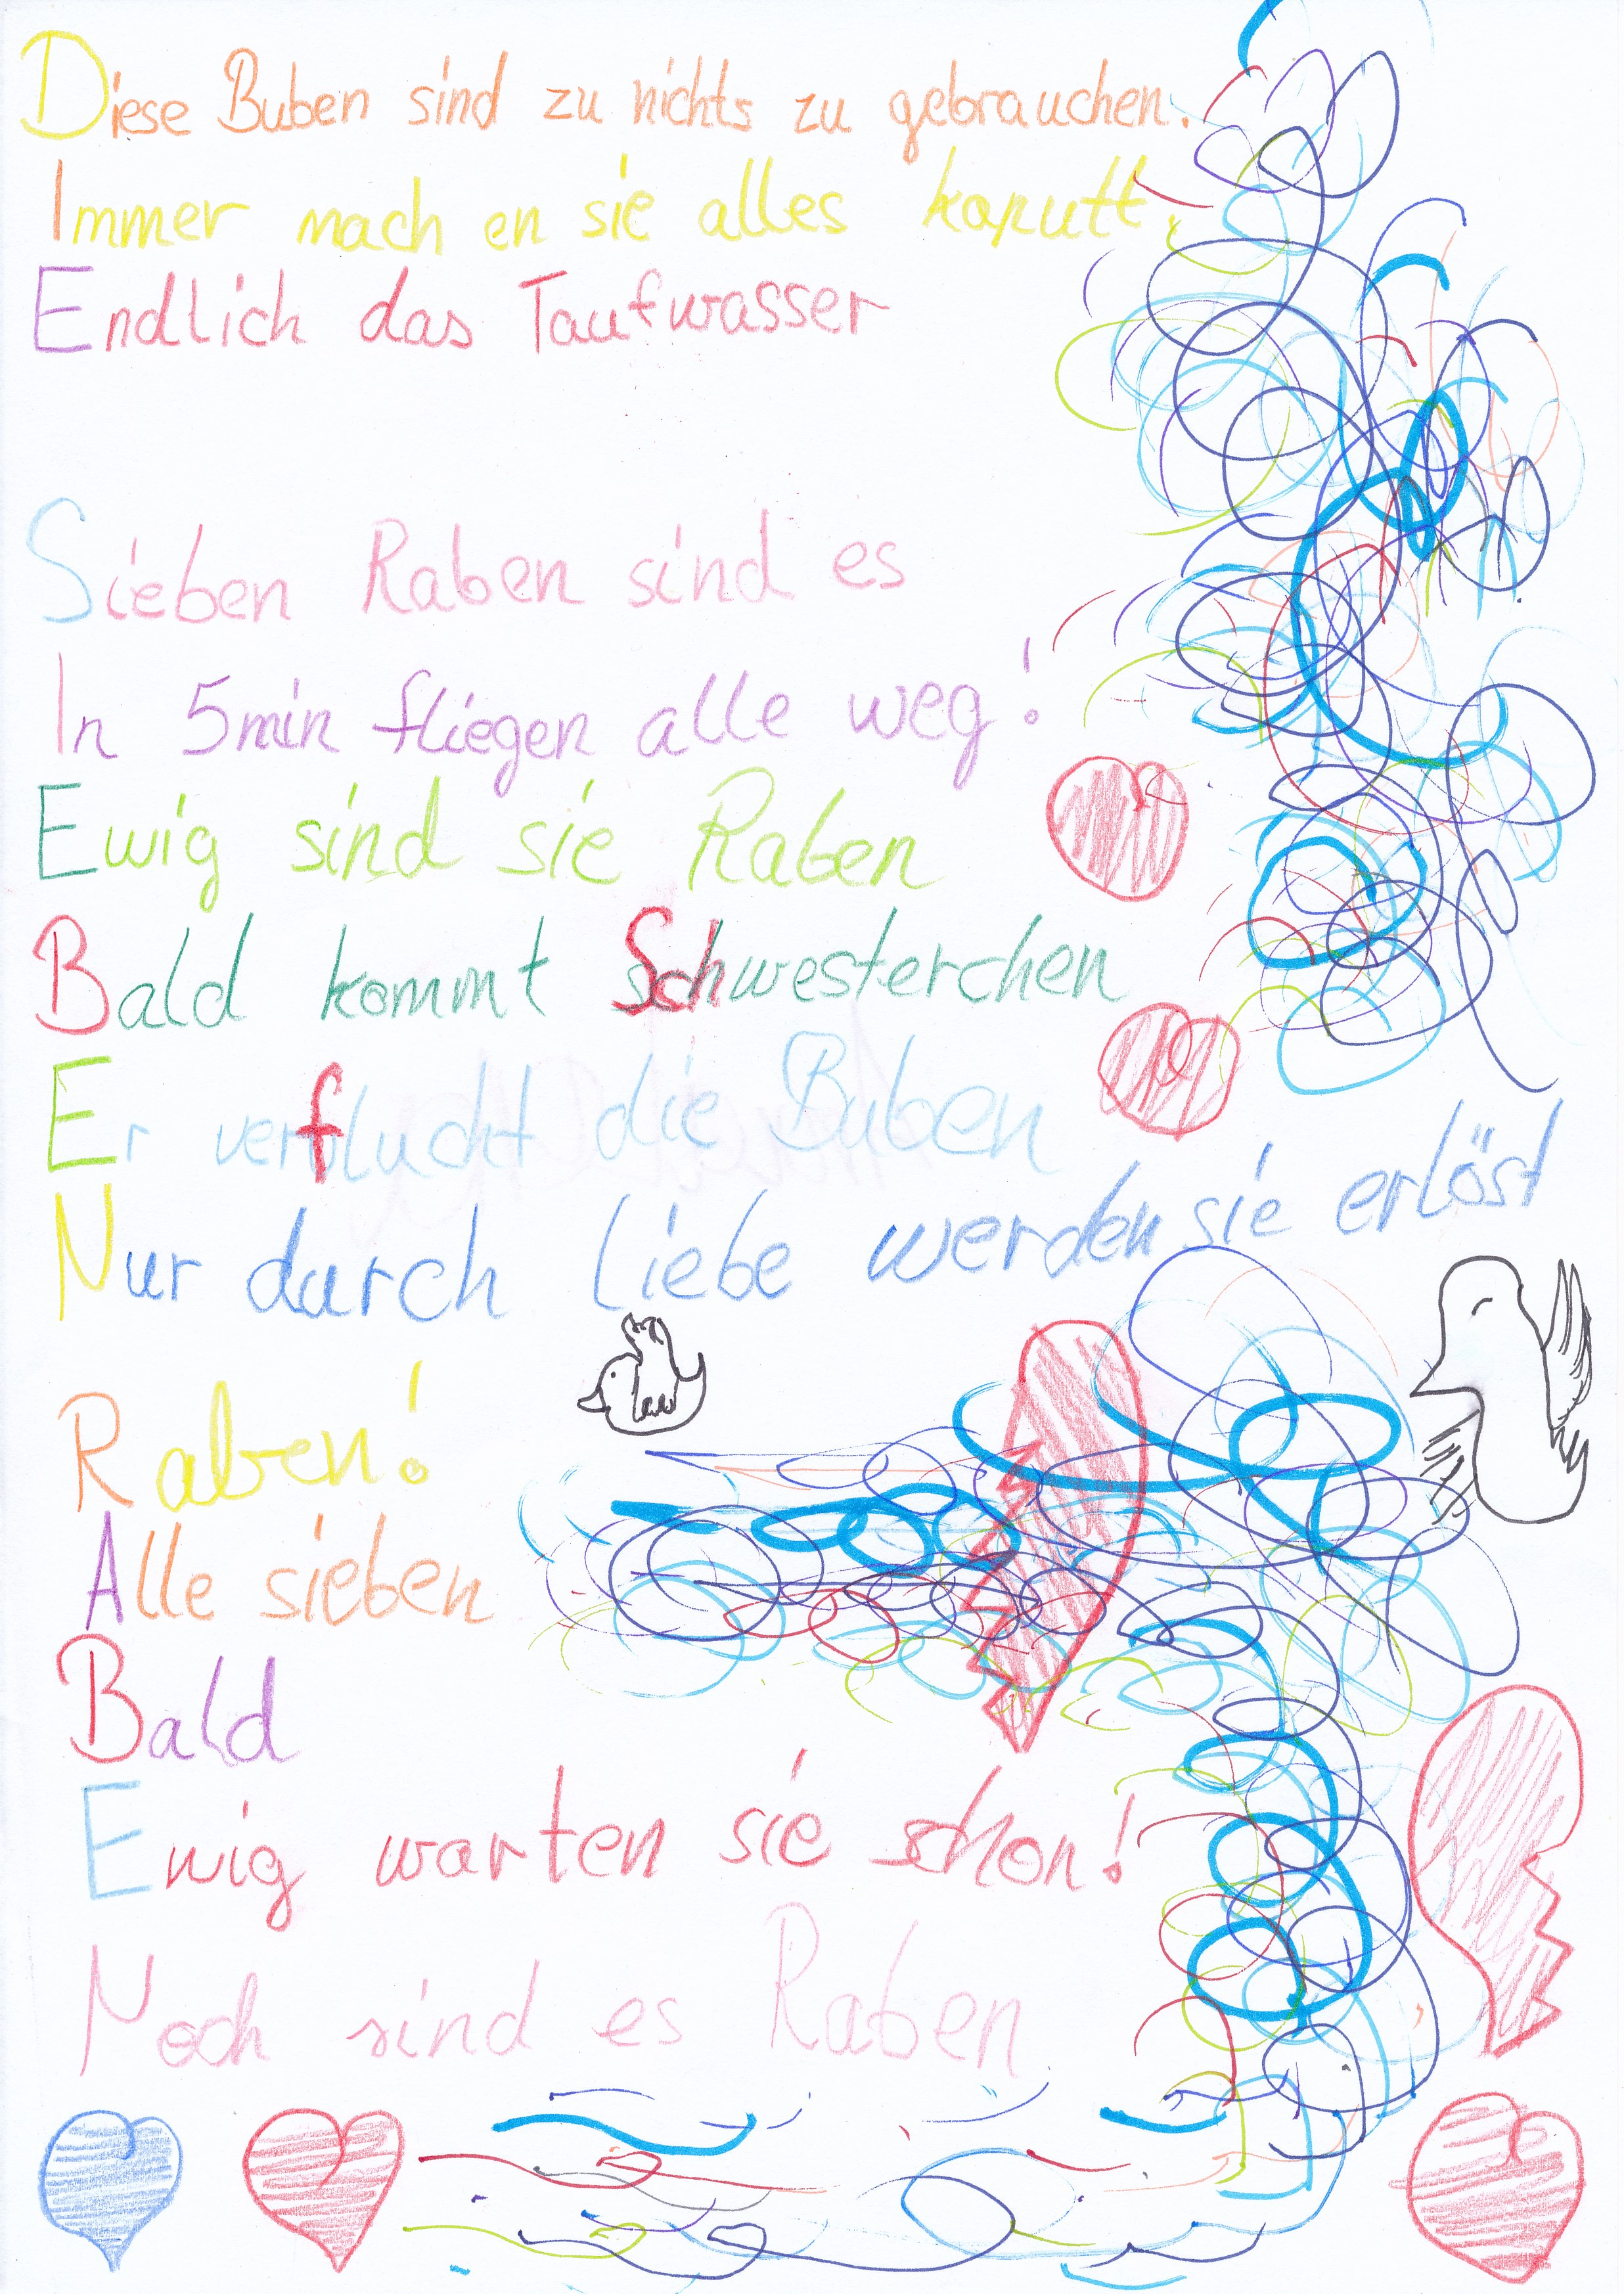 Diese Buben sind zu nichts zu gebrauchen.
Immer mach en sie alles kaputt.
Endlich das Taufwasser
Sieben Raben sind es
In 5min fliegen alle weg!
Ewig sind sie Raben
Bald kommt Schwesterchen
Er verflucht die Buben
Nur durch liebe werden sie erlöst
Raben!
Alle sieben
Bald
Ewig warten sie schon!
Noch sind es Raben